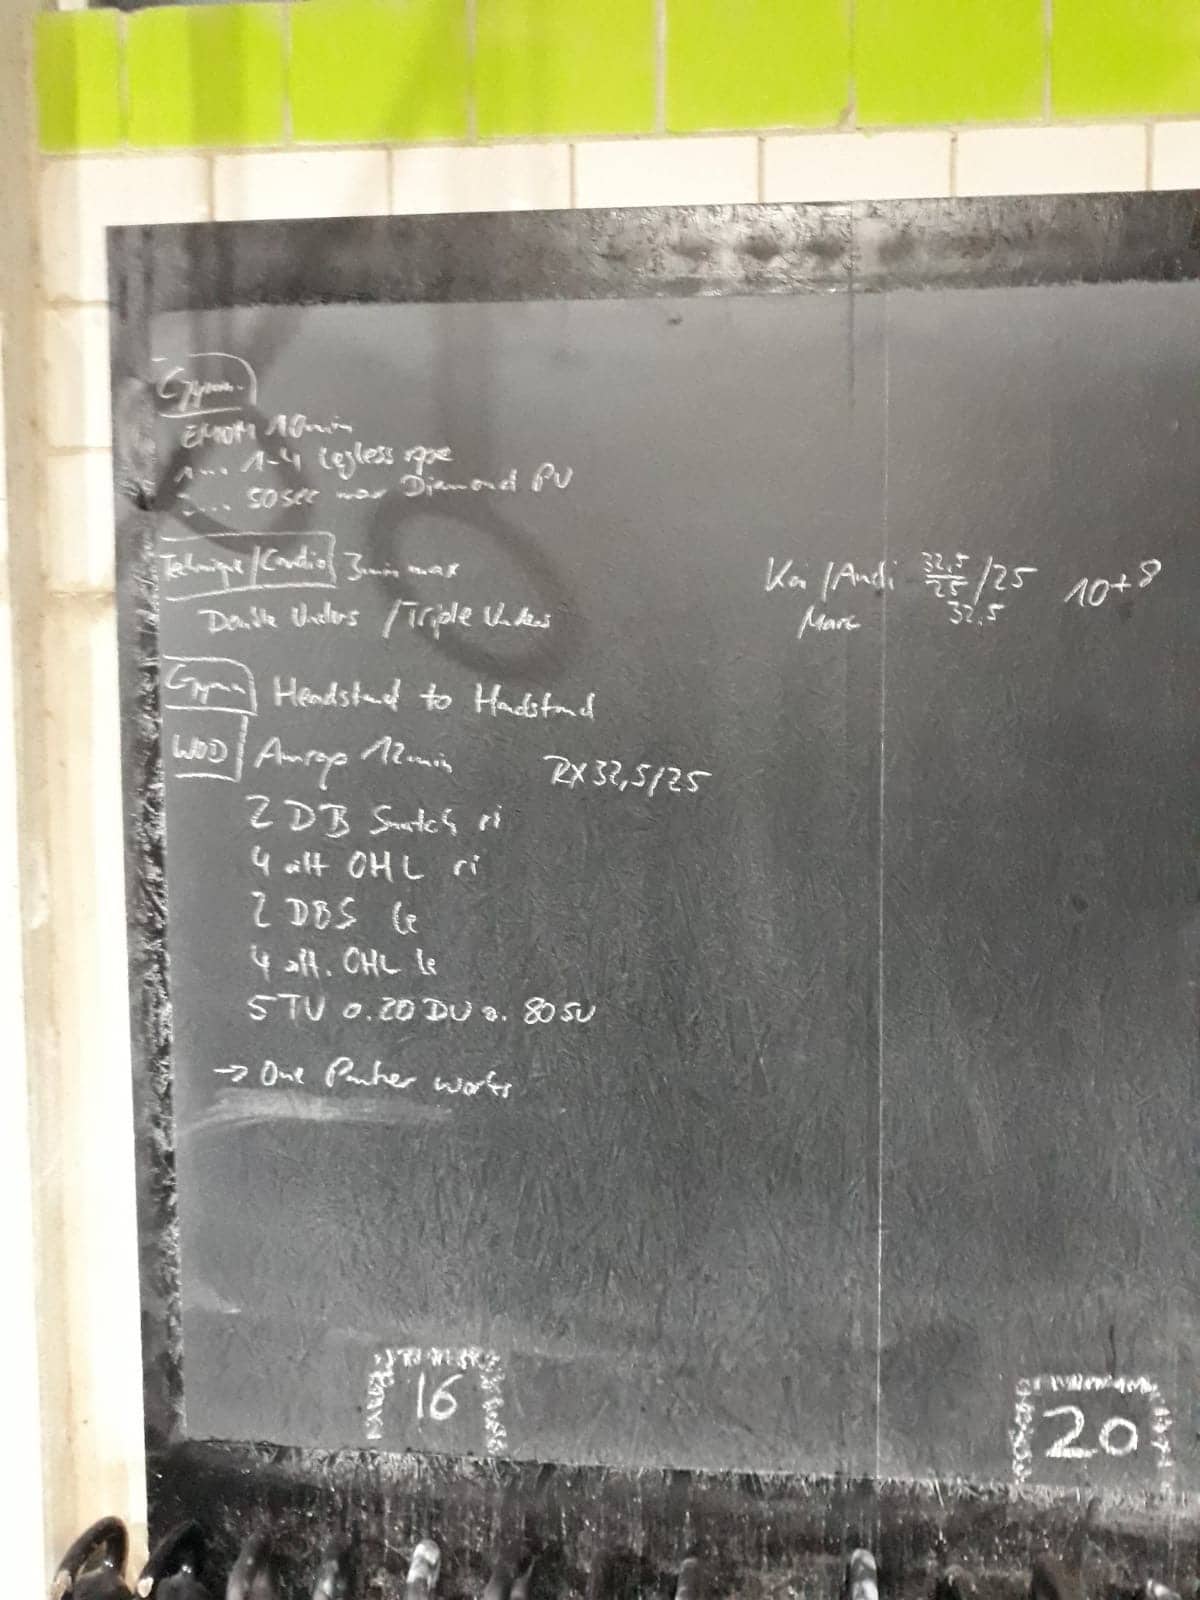 Gymn.
EMOM 10min
1... 1-4 legless rope
2... 50sec max Diamond PU
Technique/Cardio 3min max
Double Unders / Triple Unders
Gymn Headstand to Handstand
WOD Amrap 12min RX 32,5/25
2 DB Snatch ri
4 alt OHL ri
2 DBS le
4 alt. OHL le
5 TU o. 20 DU o. 80 SU
→ One Partner works
Kai / Andi 32,5/25 /25 10+8
Marc 32,5
16
20